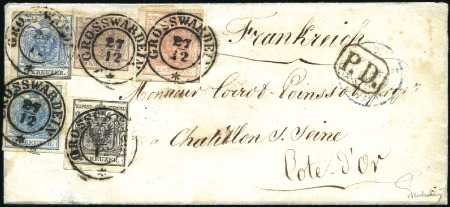 GROSSWARDEIN 27/12
GROSSWARDEIN 27/12
GROSSWARDEIN 27/12
Frankreich
P.D.
GROSSWARDEIN 27/12
KREUZER
GROSSWARDEIN
KREUZER
Monsieur
a Chatillon s. Seine
Cote d'Or